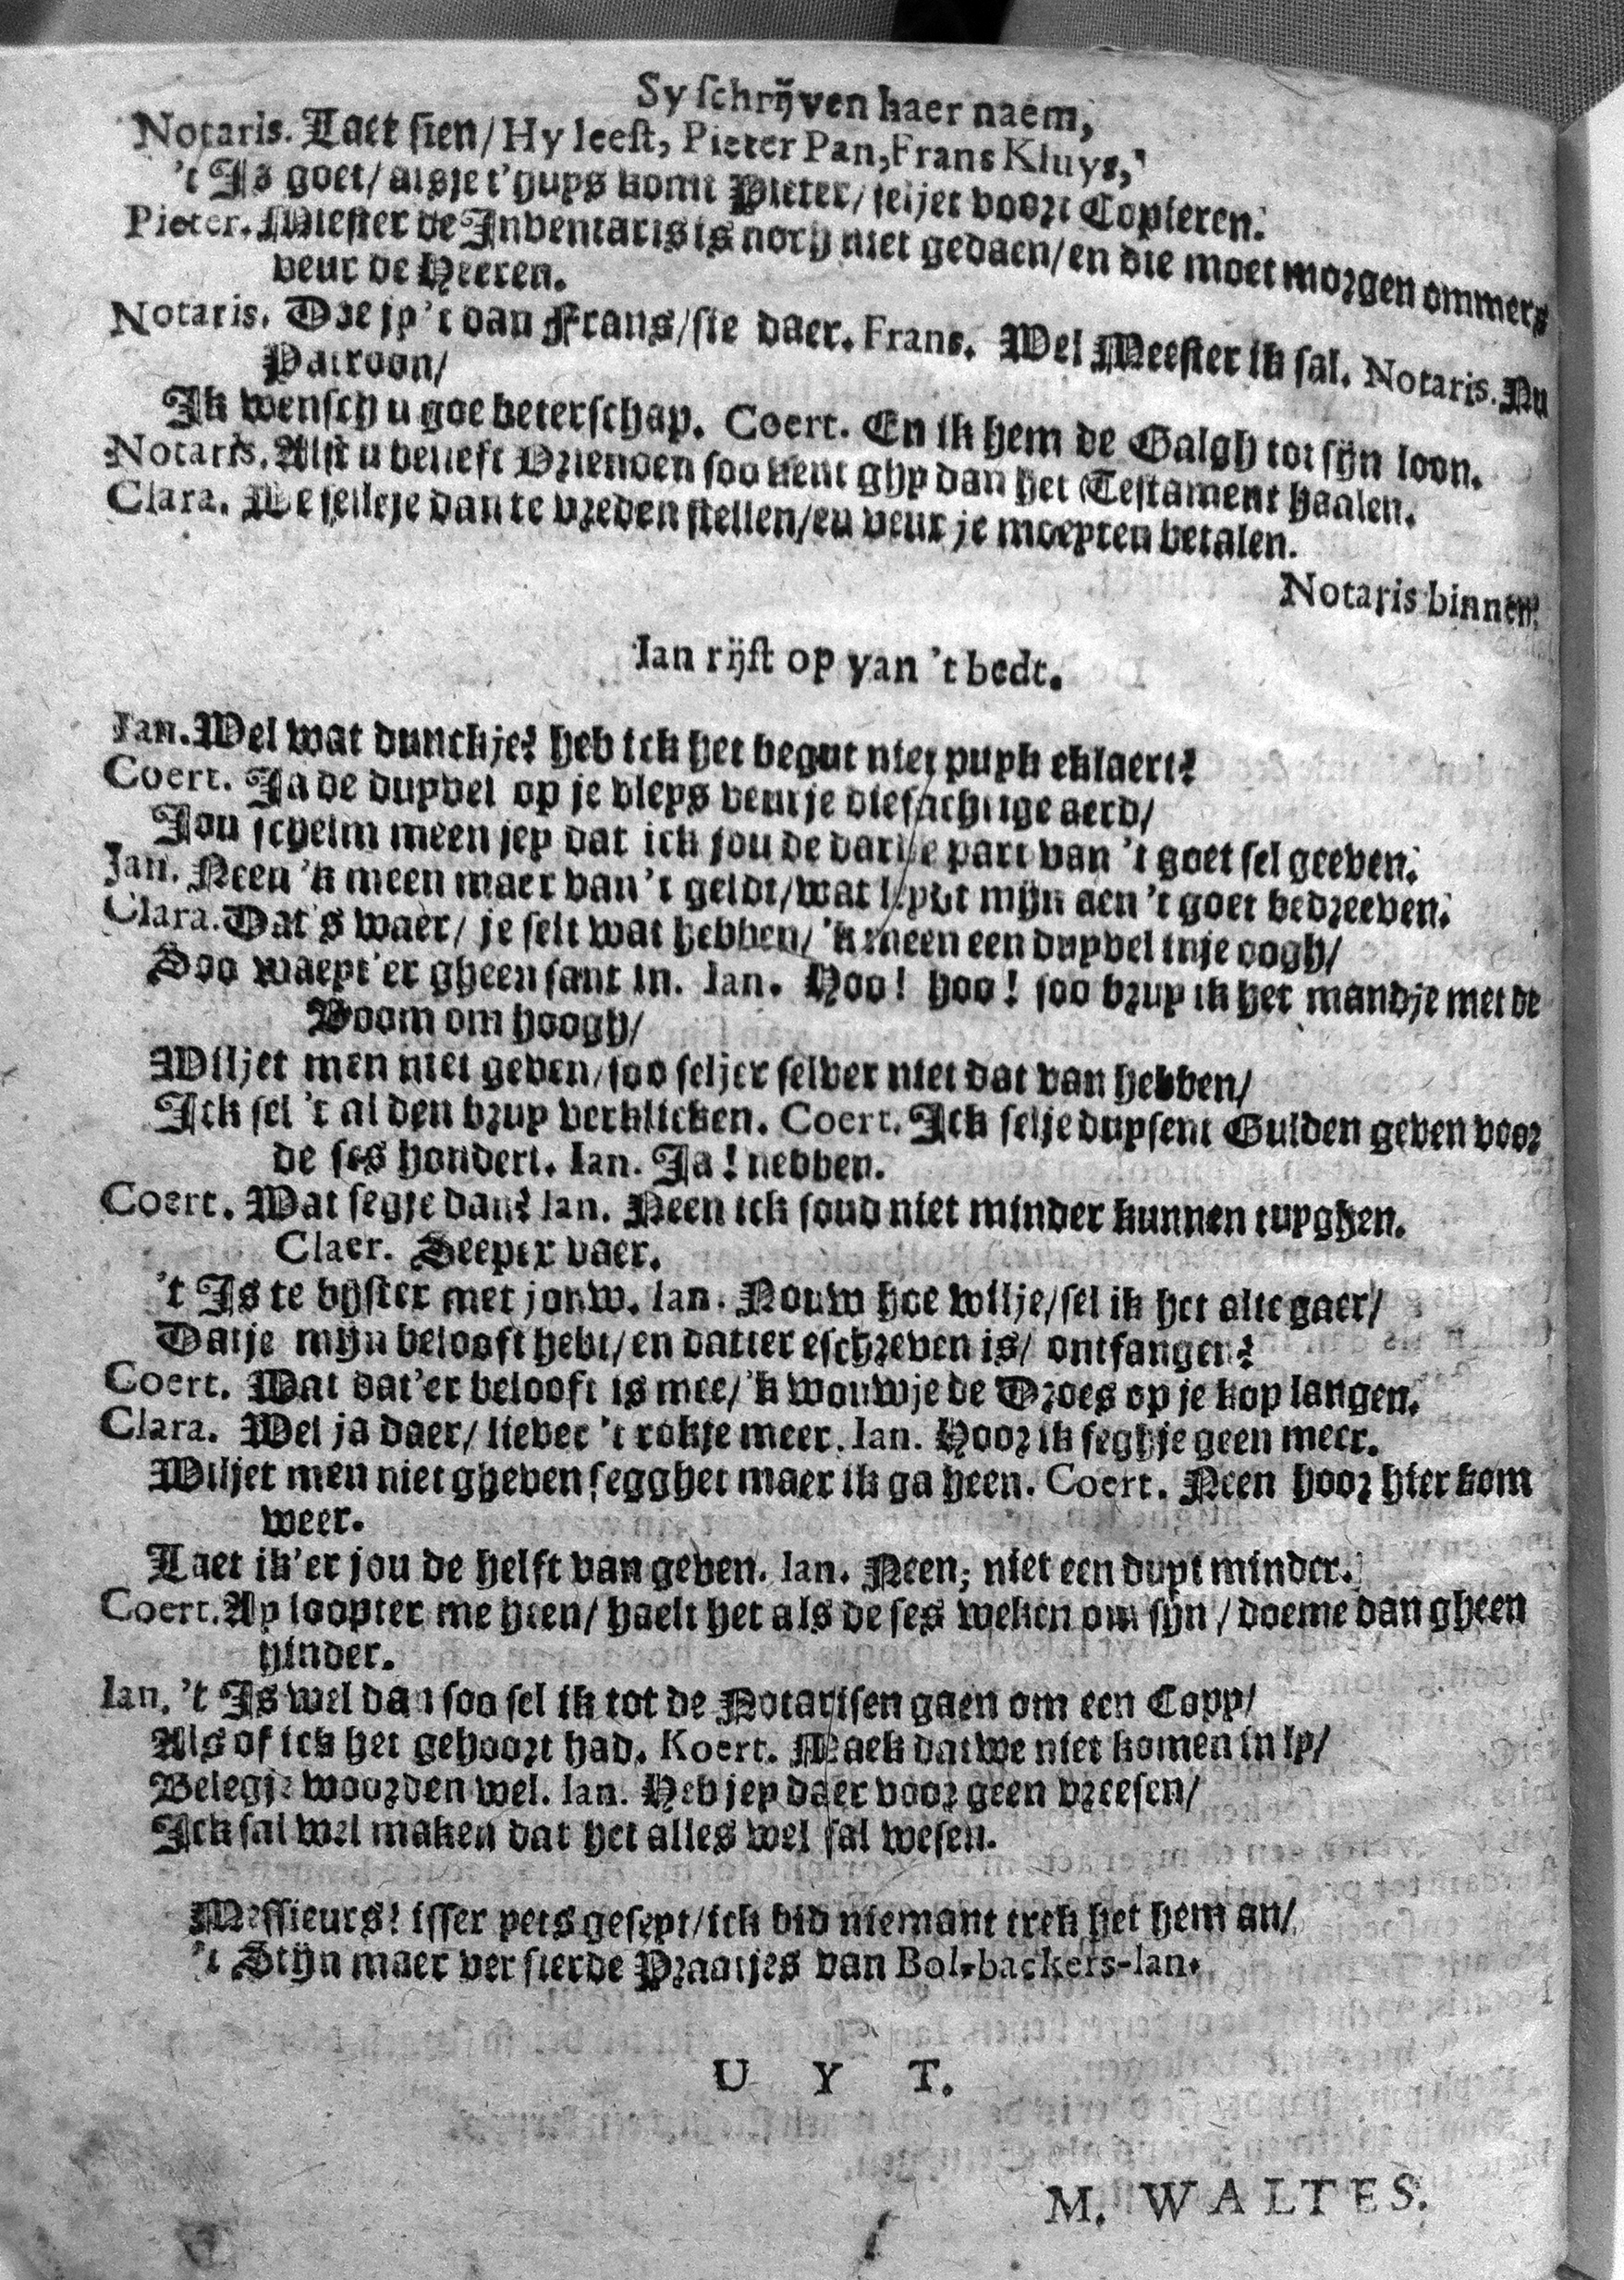 Sy schrijven haer naem,
Notaris. Laet sien/ Hy leest, Pieter Pan, Frans Kluys,
't Is goet/ alsje t'huys komt Pieter/ seljet voort Copieren.
Pieter. Miester de Inventaris is noch niet gedaen/ en die moet morgen ommers
veur de Heeren.
Notaris. Doe jy 't dan Frans/ sie daer. Frans. Wel Meester ik sal. Notaris. Nu
Patroon/
Ik wensch u goe beterschap. Coert. En ik hem de Galgh tot sijn loon.
Notaris. Alst u belieft Vrienden soo kent ghy dan het Testament haalen.
Clara. We selleje dan te vreden stellen/ en veur je moeyten betalen.
Notaris binnen.
Ian rijst op van 't bedt.
Jan. Wel wat dunckje? heb ick het begut niet puyk eklaert?
Coert. Ja de duyvel op je vleys veur je diefachtige aerd/
Jou schelm meen jey dat ick jou de darde part van 't goet sel geeven.
Jan. Neen 'k meen maer van 't geldt/ wat leydt mijn aen 't goet bedreeven.
Clara. Dat's waer/ je selt wat hebben/ 'k meen een duyvel in je oogh/
Soo waeyt'er gheen sant in. Ian. Hoo! hoo! soo bruy ik het mandje met de
Boom om hoogh/
Wiljet men niet geven/ soo seljer selver niet dat van hebben/
Ick sel 't al den bruy verklicken. Coert. Ick selje duysent Gulden geven voor
de ses hondert. Ian. Ja! nebben.
Coert. Wat segje dan? Ian. Neen ick soud niet minder kunnen tuyghen.
Claer. Seeper vaer.
't Is te byster met jouw. Ian. Nouw hoe wilje/ sel ik het alte gaer/
Datje mijn belooft hebt/ en datter eschreven is/ ontfangen?
Coert. Wat dat'er belooft is mee/ 'k wouwje de Droes op je kop langen.
Clara. Wel ja daer/ liever 't rokje meer. Ian. Hoor ik seghje geen meer.
Wiljet men niet gheven segghet maer ik ga heen. Coert. Neen hoor hier kom
weer.
Laet ik'er jou de helft van geven. Ian. Neen; niet een duyt minder.
Coert. Ay loopter me heen/ haelt het als de ses weken om sijn/ doeme dan gheen
hinder.
Ian. 't Is wel dan soo sel ik tot de Notarisen gaen om een Copy/
Als of ick het gehoort had. Koert. Maek dat we niet komen in ly/
Belegje woorden wel. Ian. Heb jey daer voor geen vreesen/
Ick sal wel maken dat het alles wel sal wesen.
Messieurs! isser yets geseyt/ ick bid niemant trek het hem an/
't Stijn maer versierde Praatjes van Bol-backers-Ian.
U Y T.
M. WALTES.